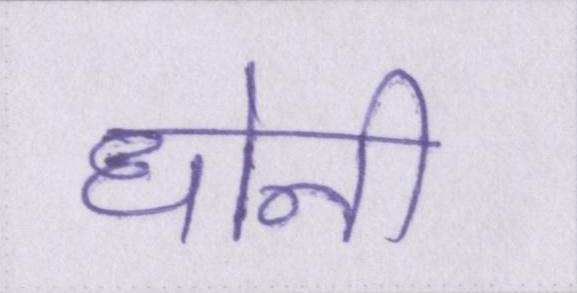 धोनी